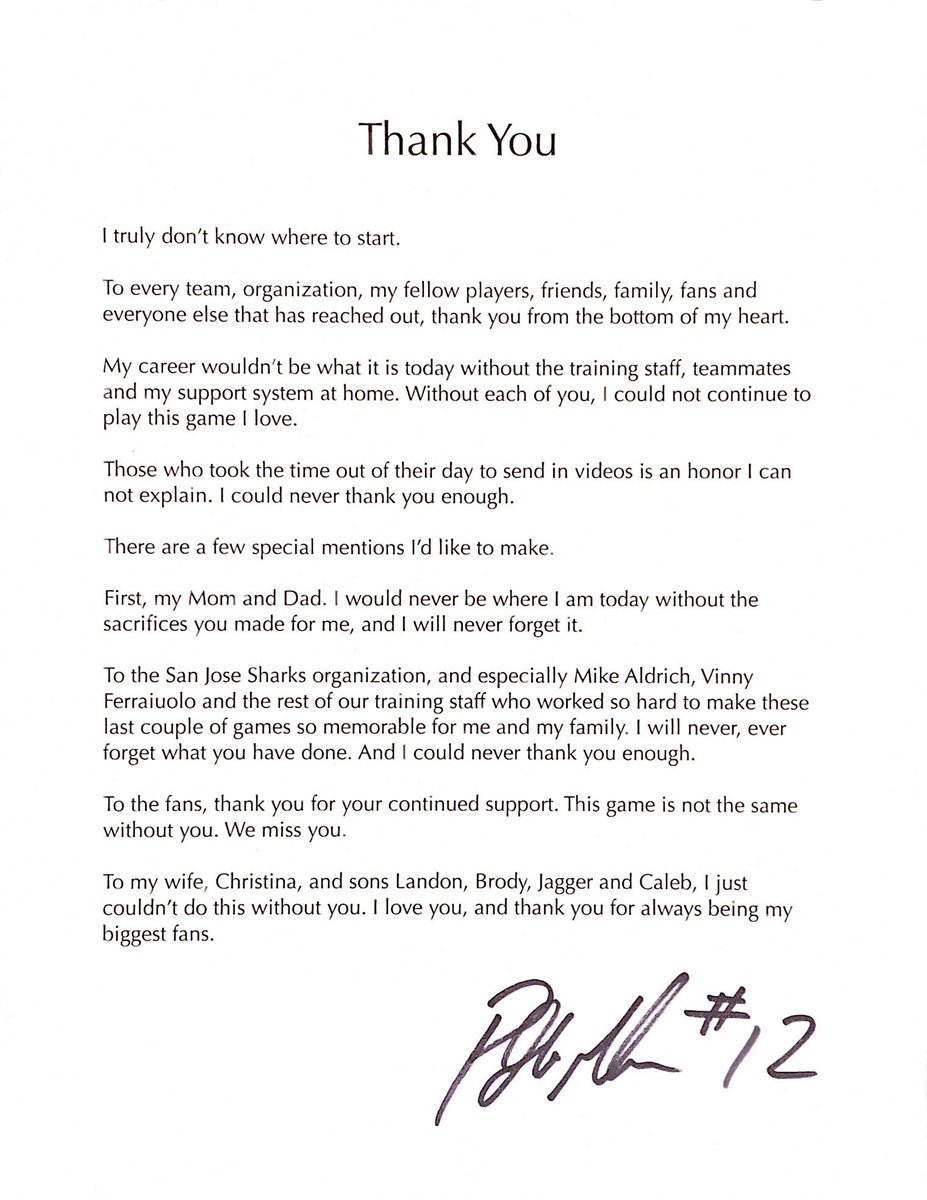 Thank You
I truly don't know where to start.
To every team, organization, my fellow players, friends, family, fans and
everyone else that has reached out, thank you from the bottom of my heart.
My career wouldn't be what it is today without the training staff, teammates
and my support system at home. Without each of you, I could not continue to
play this game I love.
Those who took the time out of their day to send in videos is an honor I can
not explain. I could never thank you enough.
There are a few special mentions I'd like to make.
First, my Mom and Dad. I would never be where I am today without the
sacrifices you made for me, and I will never forget it.
To the San Jose Sharks organization, and especially Mike Aldrich, Vinny
Ferraiuolo and the rest of our training staff who worked so hard to make these
last couple of games so memorable for me and my family. I will never, ever
forget what you have done. And I could never thank you enough.
To the fans, thank you for your continued support. This game is not the same
without you. We miss you.
To my wife, Christina, and sons Landon, Brody, Jagger and Caleb, I just
couldn't do this without you. I love you, and thank you for always being my
biggest fans.
#12